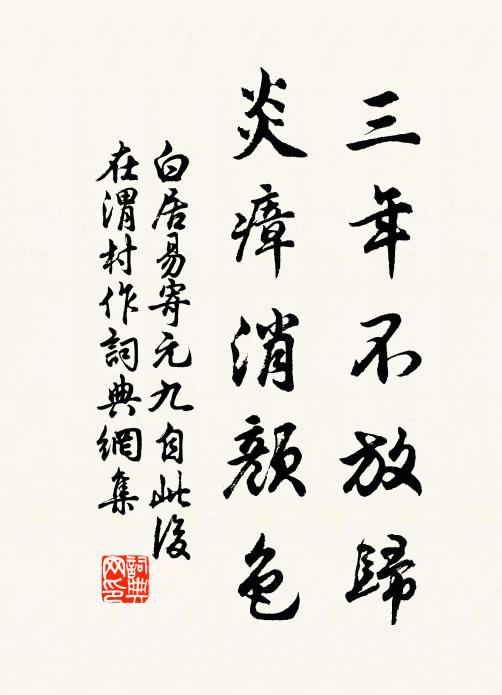 三年不放歸
炎瘴消顏色
白居易寄元九自此後
在渭村作詞典網集
詞典
网印